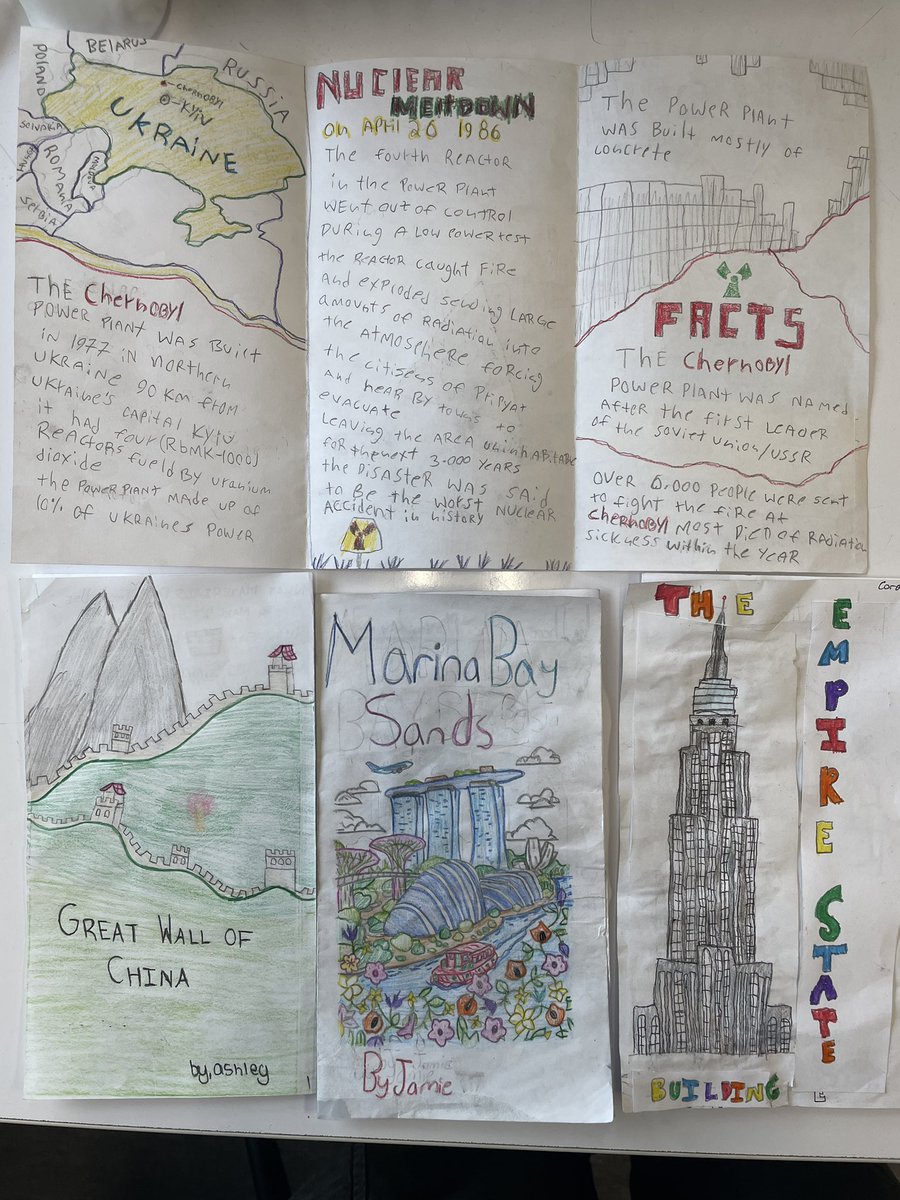 BELARUS
POLAND
RUSSIA
Chernobyl
KYIV
UKRAINE
ROMANIA
SERBIA
THE Chernobyl
POWER PLANT WAS BUILT
in 1977 in northern
UKRAINE 90 Km from
UKRAINE'S CAPITAL KYIV
it had four (RbMK-1000)
REACTORS fueld BY uranium
dioxide
the POWER PLANT MADE UP of
10% of UKRAINES POWER
NUCLEAR
MELTDOWN
On APRIL 26 1986
The fourth REACTOR
in the POWER PLANT
WENT OUT OF CONTROL
DURING A LOW POWER TEST
the REACTOR CAUGHT FIRE
AND exploded sending LARGE
AMOUNTS of RADIATION into
the ATMOSPHERE forcing
the citisens of PRIPYAT
AND neAR BY towns to
evacuate
LEAVING the AREA uninhABitABle
for the next 3.000 YEARS
the DISASTER WAS SAID
to BE the WORST NUCLEAR
ACCIDENT in HISTORY
The POWER PLANT
WAS BUILT mostly of
concrete
FACTS
THE Chernobyl
POWER PLANT WAS NAMED
AFTER the FIRST LEADER
of the SOVIET UNION/USSR
OVER 6.000 PEOPLE WERE SENT
to fight the fire AT
Chernobyl MOST DIED of RADIATION
sickness within the YEAR
GREAT WALL OF
CHINA
by, ashley
Marina Bay
Sands
By Jamie
THE
EMPIRE STATE
BUILDING